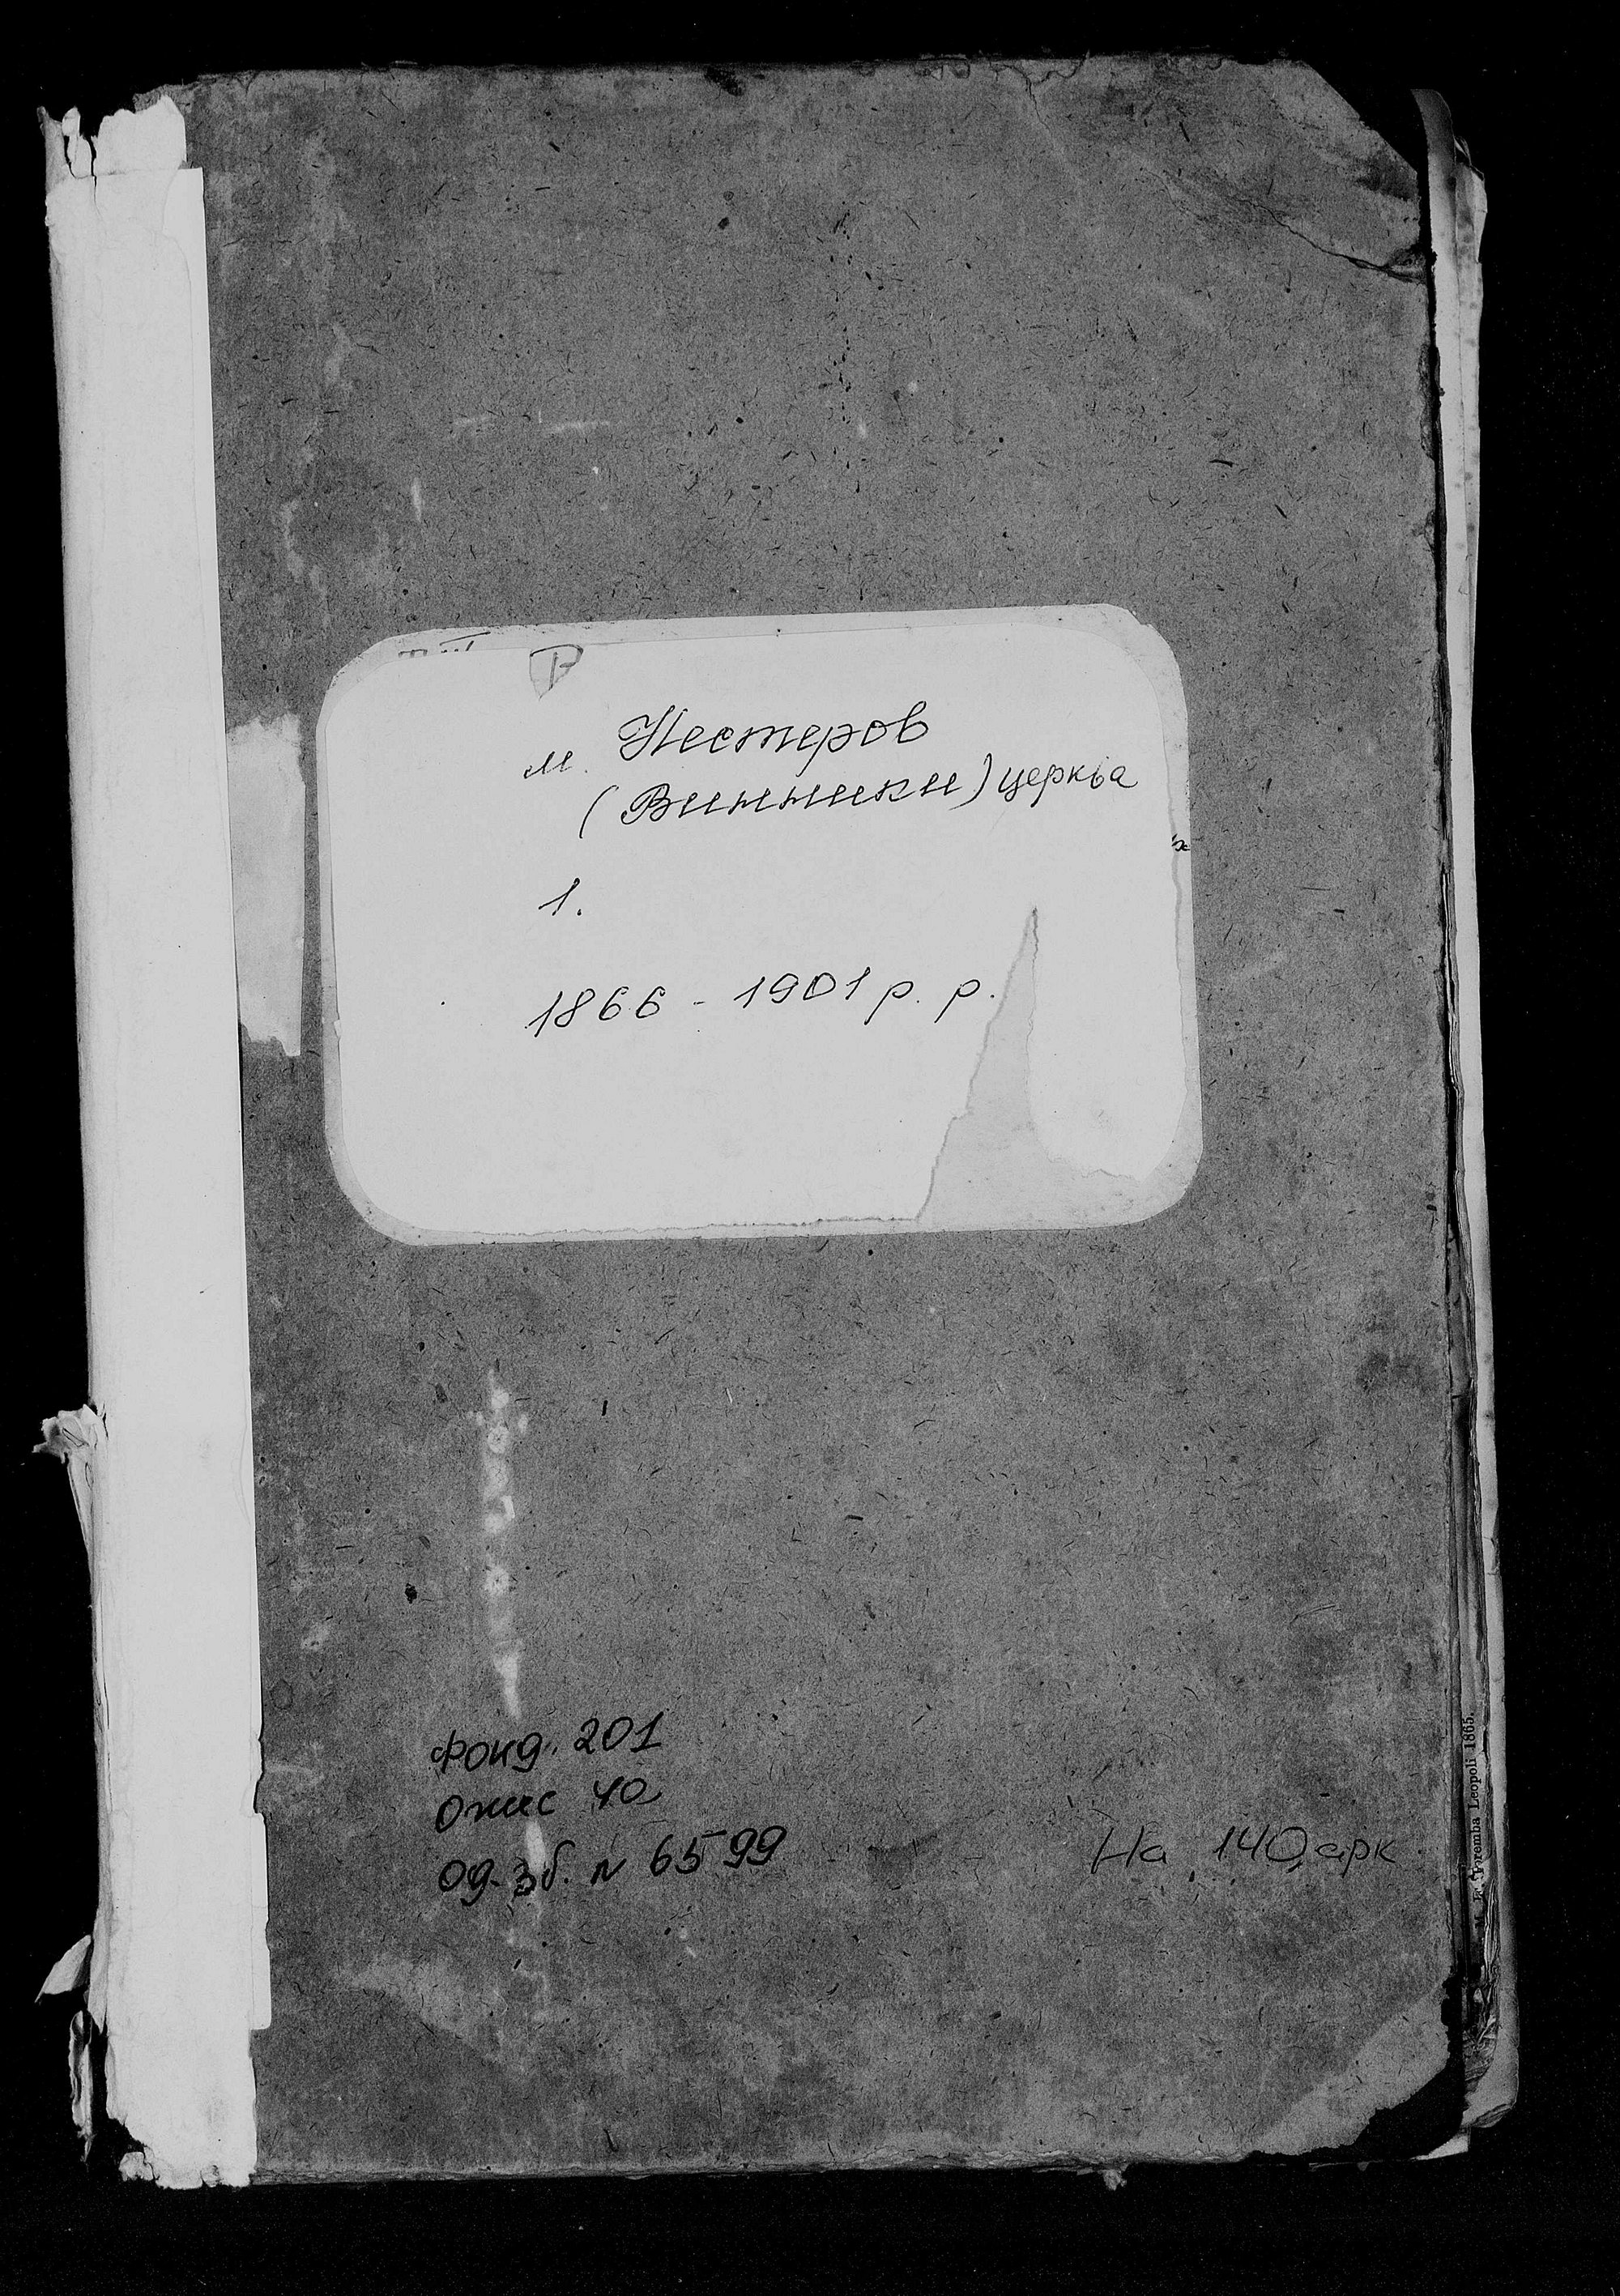 м. Нестеров
(Винники) церква
1.
1866 - 1901 р. р.
Фонд. 201
Опис 4а
од. зб. N 6599
На 140 арк
Poremba Leopoli 1865.